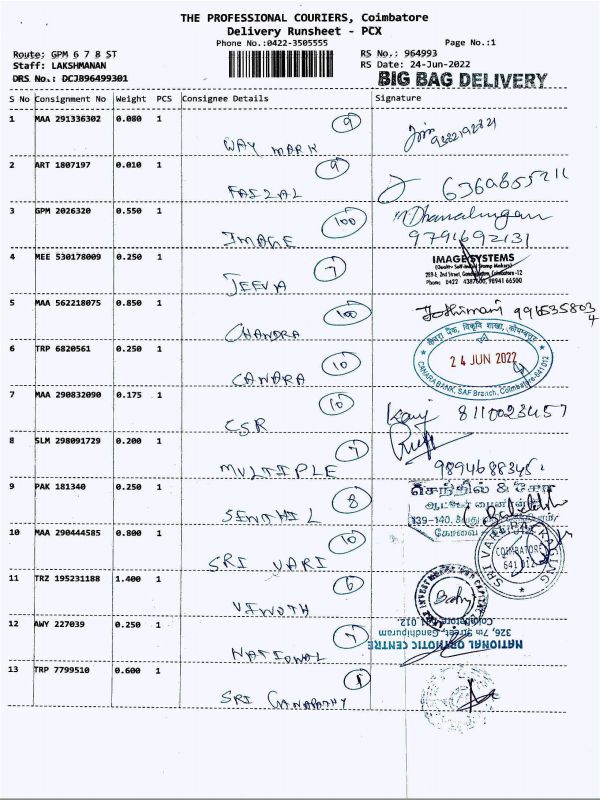 THE PROFESSIONAL COURIERS, Coimbatore
Delivery Runsheet - PCX
Phone No.:0422-3505555
Page No.:1
Route: GPM 6 7 8 ST
RS No.: 964993
Staff: LAKSHMANAN
RS Date: 24-Jun-2022
DRS No.: DCJB96499301
BIG BAG DELIVERY
S No Consignment No Weight PCS Consignee Details Signature
1 MAA 291336302 0.080 1
9
WAY MARK
2 ART 1807197 0.010 1
9
FAIZAL
3 GPM 2026320 0.550 1
100
IMAGE
9791692131
4 MEE 530178009 0.250 1
7
JEEVA
IMAGE SYSTEMS
5 MAA 562218075 0.850 1
100
CHANDRA
6 TRP 6820561 0.250 1
10
CANDRA
24 JUN 2022
CANARA BANK, SAF Branch, Coimbatore-641012
7 MAA 290832090 0.175 1
10
CSR
8110023457
8 SLM 298091729 0.200 1
7
MULTIPLE
9 PAK 181340 0.250 1
8
SENTHIL
செந்தில் & கோ
10 MAA 290444585 0.800 1
10
SRI VARI
COIMBATORE
641 012
11 TRZ 195231188 1.400 1
6
VINOTH
12 AWY 227039 0.250 1
7
NATIONAL
NATIONAL ORTHOTIC CENTRE
326, 7th Street, Gandhipuram
Coimbatore - 641 012
13 TRP 7799510 0.600 1
1
SRI GANAPATHY